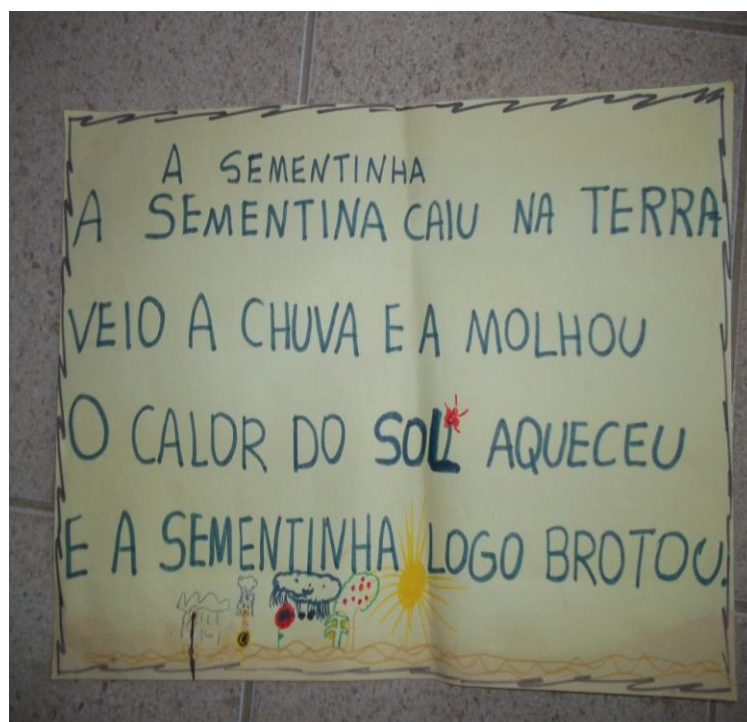 A SEMENTINHA
A SEMENTINA CAIU NA TERRA
VEIO A CHUVA E A MOLHOU
O CALOR DO SOL AQUECEU
E A SEMENTINHA LOGO BROTOU.